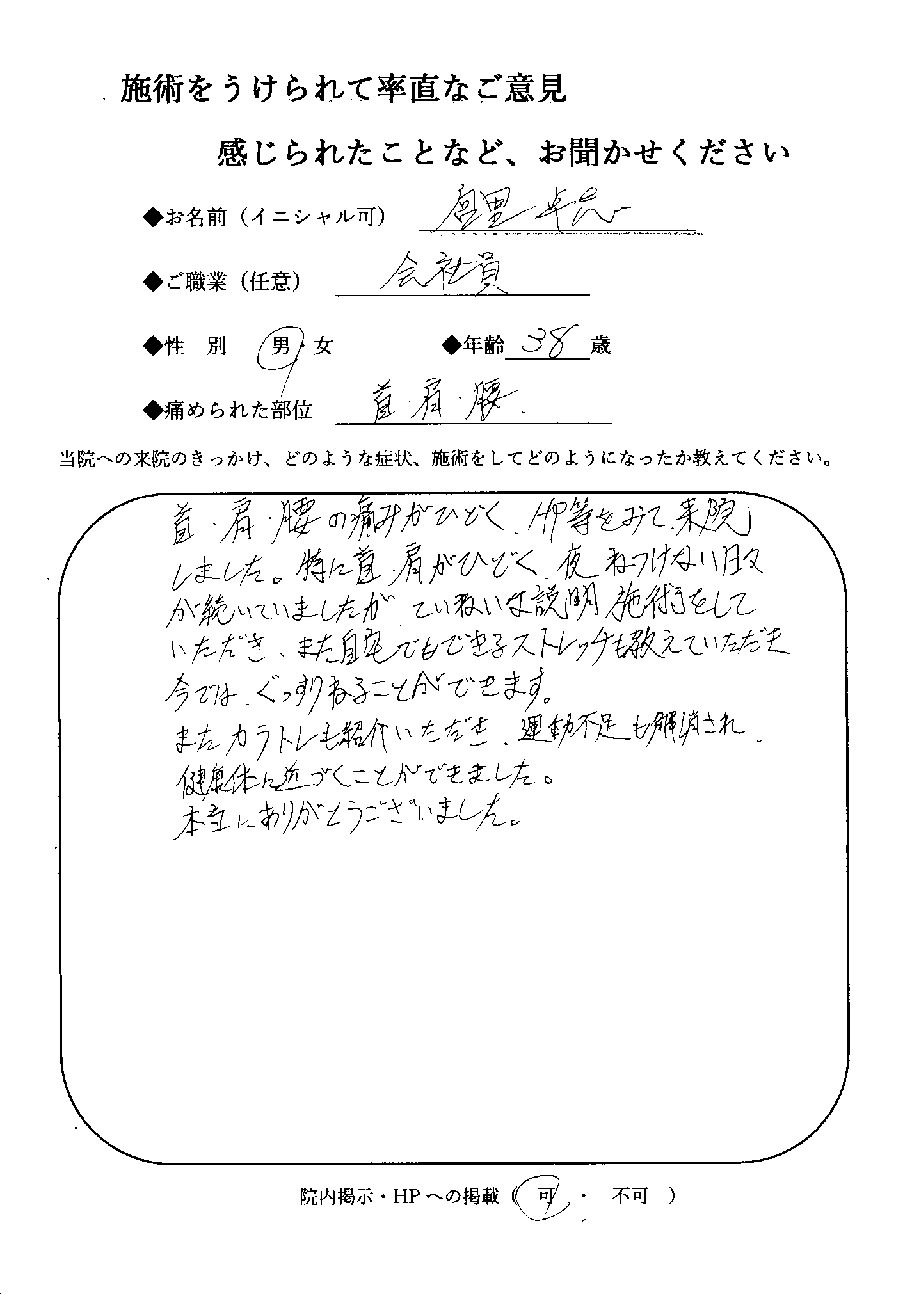 施術をうけられて率直なご意見
感じられたことなど、お聞かせください
◆お名前（イニシャル可）
◆ご職業（任意） 会社員
◆性 別 男・女 ◆年齢 38 歳
◆痛められた部位 首・肩・腰
当院への来院のきっかけ、どのような症状、施術をしてどのようになったか教えてください。
首・肩・腰の痛みがひどく、HP等をみて来院
しました。特に首、肩がひどく、夜ねつけない日々
が続いていましたが、ていねいな説明、施術をして
いただき、また自宅でもできるストレッチも教えていただき
今では、ぐっすりねることができます。
またカラトレも紹介いただき、運動不足も解消され、
健康体に近づくことができました。
本当にありがとうございました。
院内掲示・HPへの掲載（ 可 ・ 不可 ）